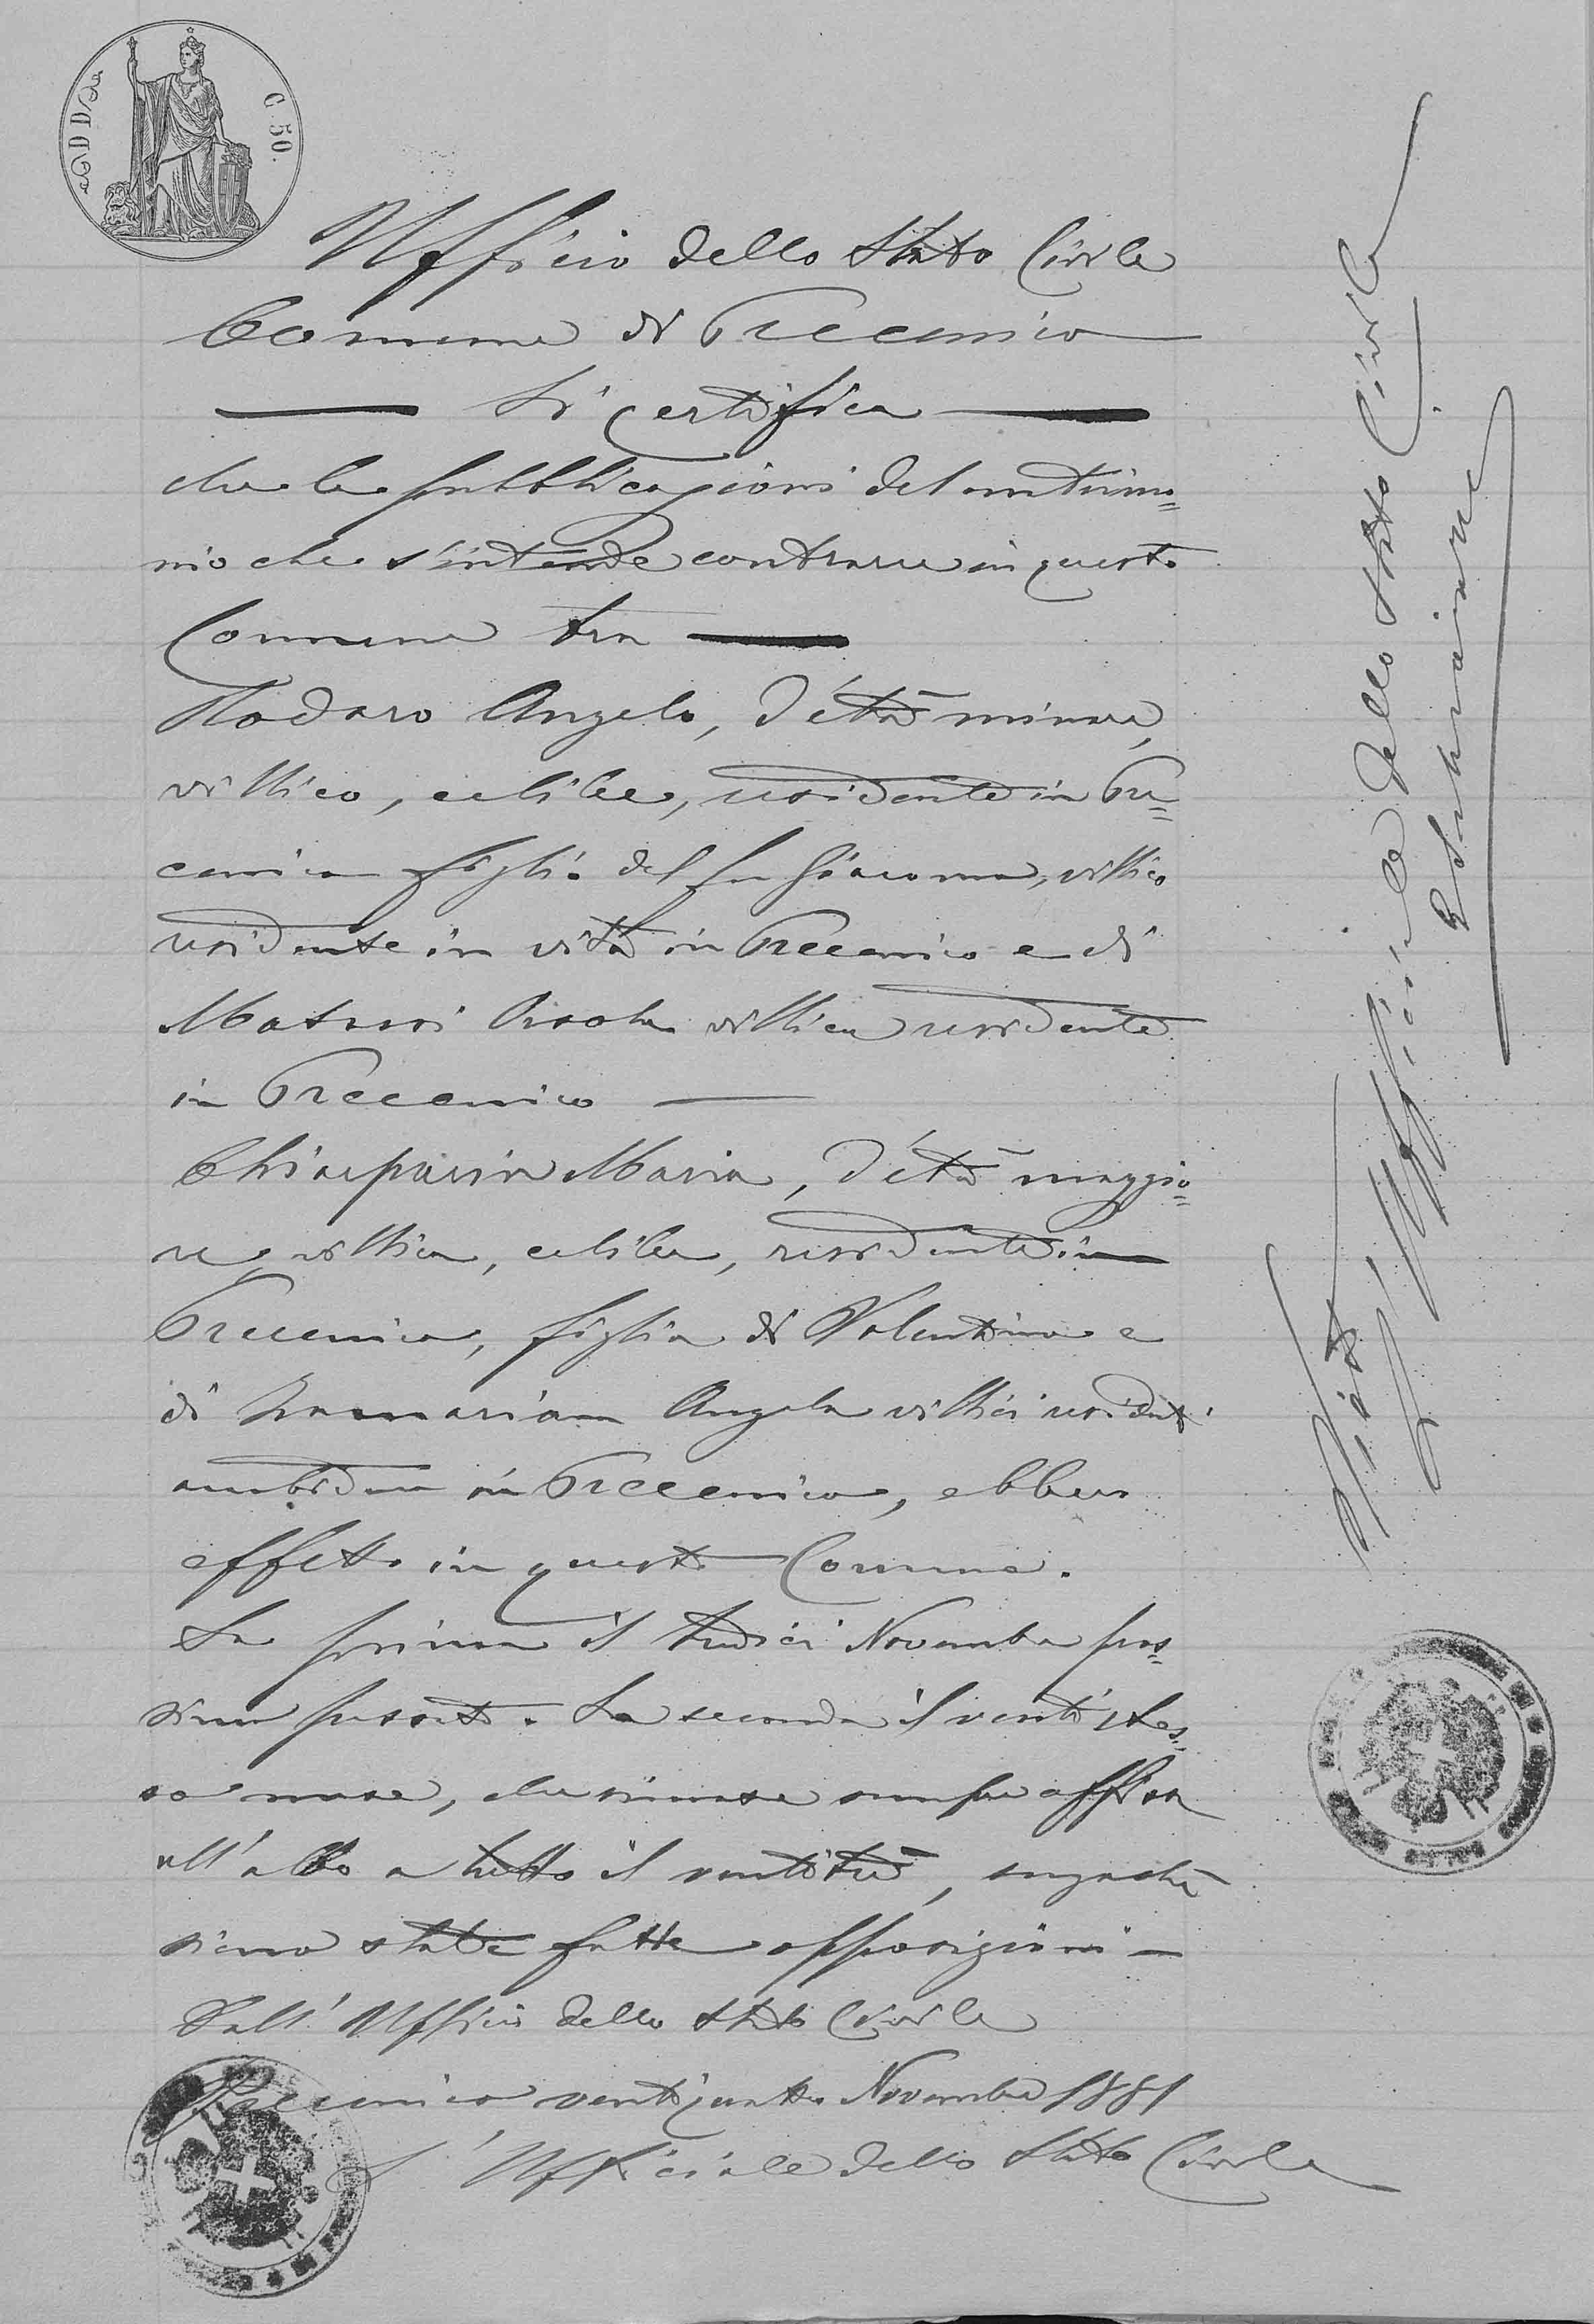 C. 50.
Ufficio dello Stato Civile
Comune di Precenico
Si certifica
che le pubblicazioni del matrimo=
nio che s'intende contrarre in questo
Comune tra
Rodaro Angelo, d'età minore,
villico, celibe, residente in Pre=
cenico figlio del fu Giacomo, villico
residente in vita in Precenico e di
villica residente
in Precenico
Chiarparin Maria, d'età maggio=
re, villica, celibe, residente in
Precenico, figlia di Valentino e
di Angela villici residenti
ambidue in Precenico, ebbero
effetto in questo Comune.
La prima il tredici Novembre pros=
simo passato. La seconda il venti stes=
so mese, che rimase sempre affissa
all'albo a tutto il ventitre, senzachè
siano state fatte opposizioni
Dall'Ufficio dello Stato Civile
Precenico ventiquattro Novembre 1881
L'Ufficiale dello Stato Civile
Visto
L'Ufficiale dello Stato Civile